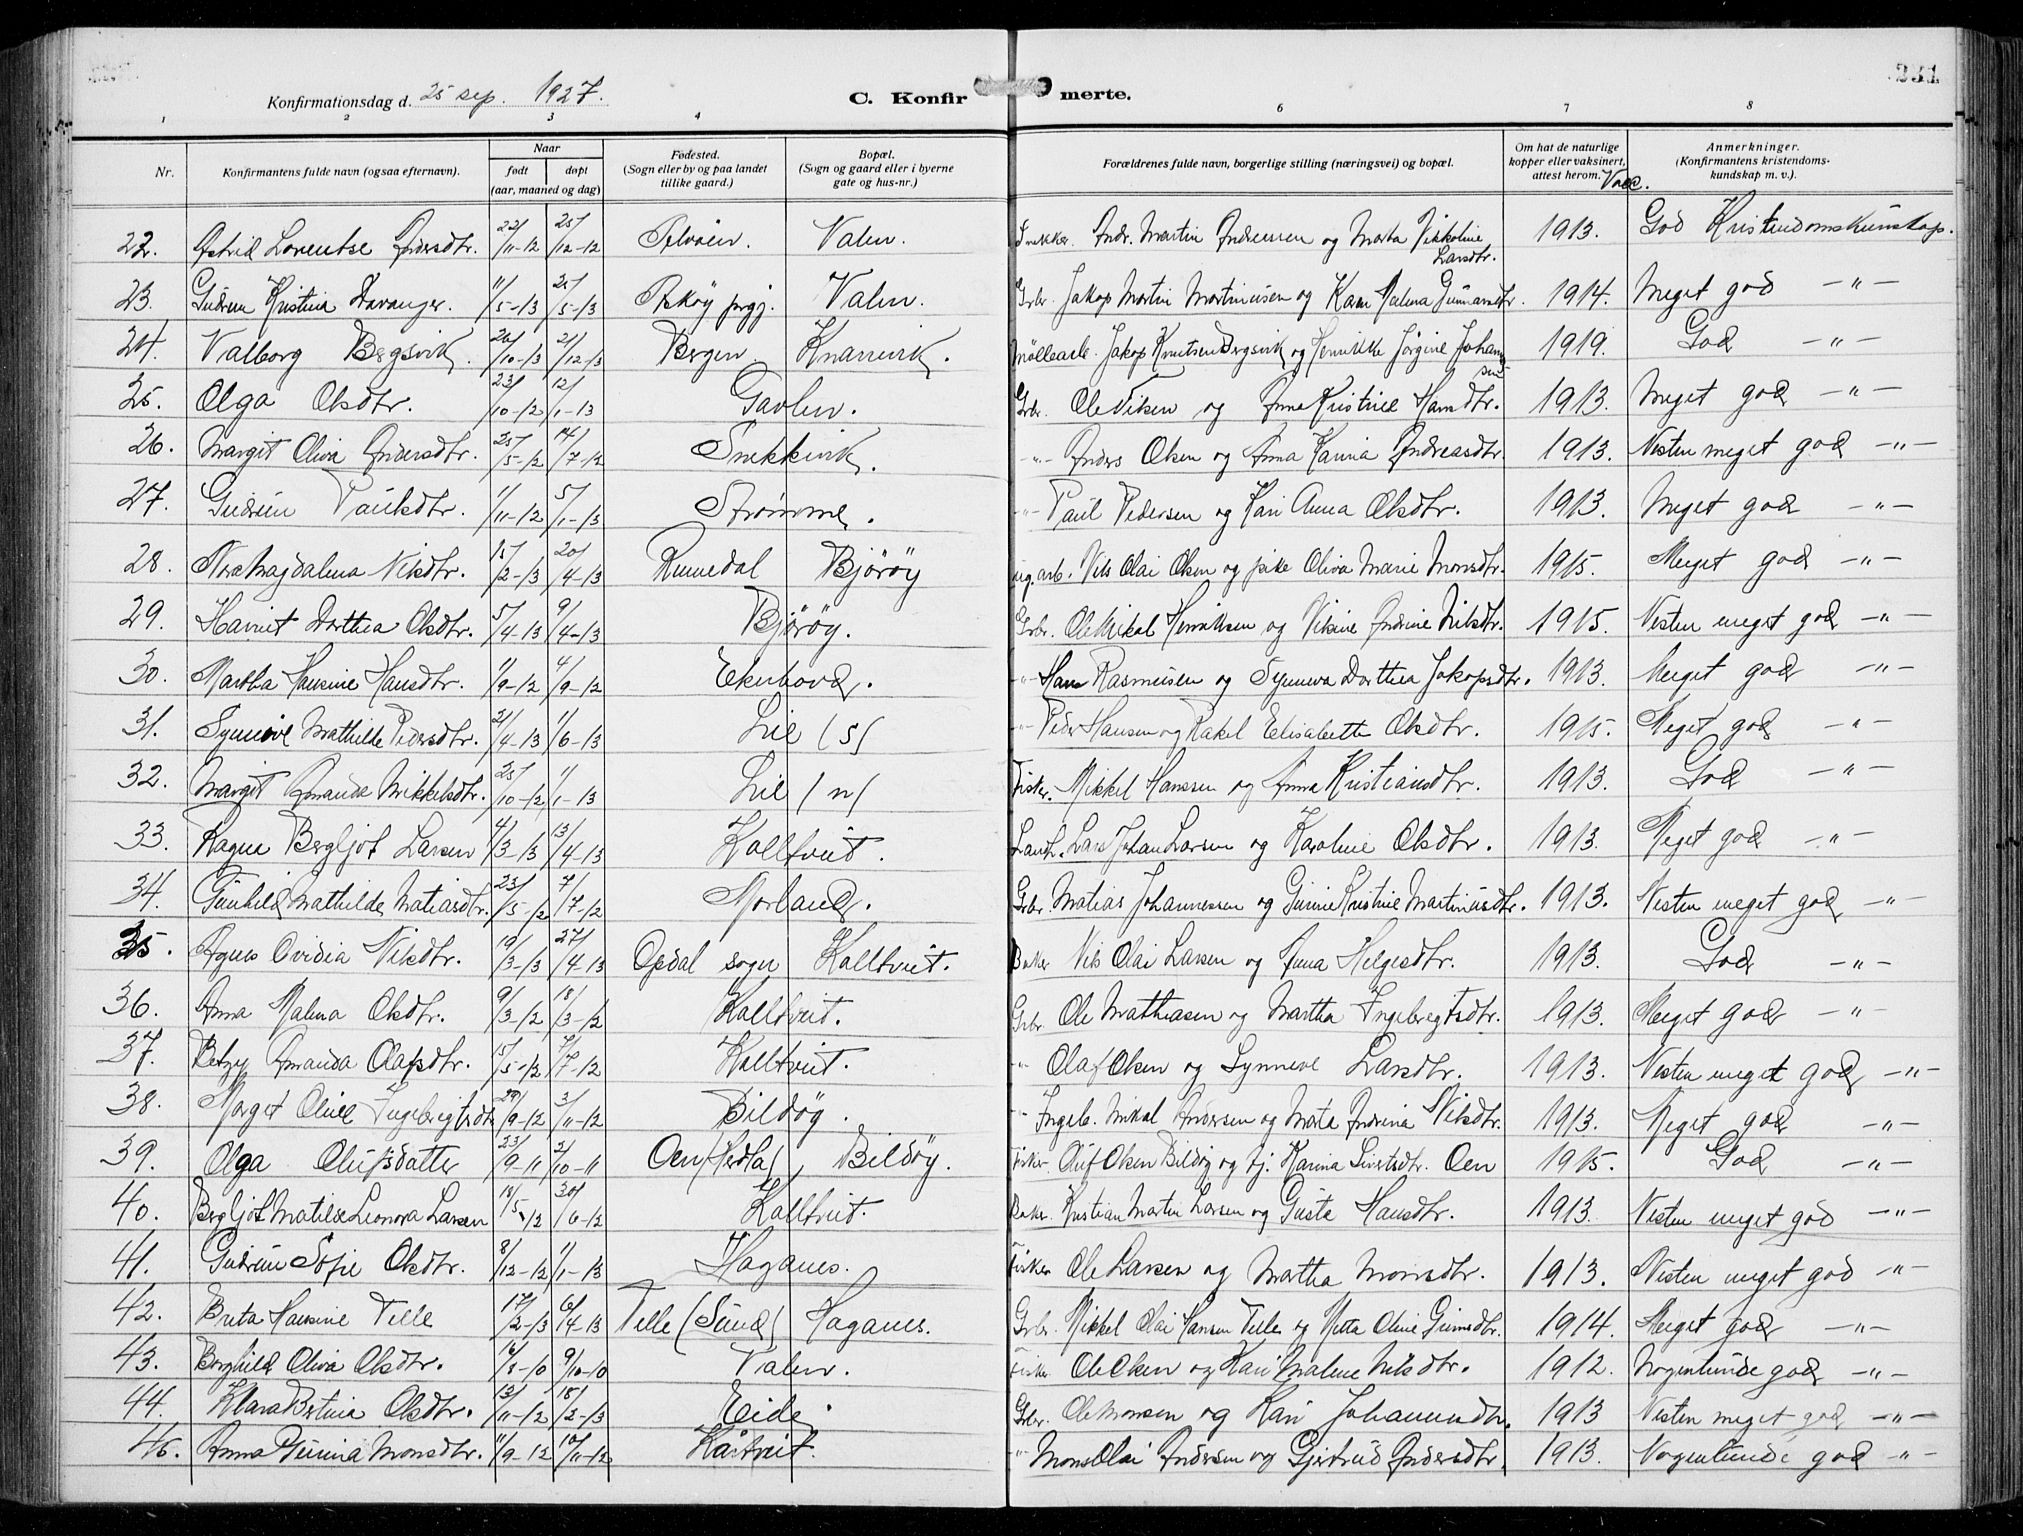 Konfirmationsdag d. 25 sep. 1927. C. Konfirmerte. 231
1 2 3 4 6 7 8
Nr. Konfirmantens fulde navn (ogsaa efternavn). Naar født døpt (aar, maaned og dag) Fødested. (Sogn eller by og paa landet tillike gaard.) Bopæl. (Sogn og gaard eller i byerne gate og hus-nr.) Forældrenes fulde navn, borgerlige stilling (næringsvei) og bopæl. Om hat de naturlige kopper eller vaksinert, attest herom. Vacc. Anmerkninger. (Konfirmantens kristendoms-kundskap m. v.).
22. Astrid Lorentse Andersdtr. 22/11-12 25/12-12 Valen. Snekker. Andr. Martin Andreassen og Marta Nikoline Larsdtr. 1913. God Kristendomskunskap.
23. Gudrun Kristina Davanger. 11/5-13 25/5-13 Askøy prgj. Valen. Grbr. Jakop Martin Martinusen og Karen Malena Gunnarsdtr. 1914. Meget god -"-
24. Valborg Bergsvik. 20/10-13 21/12-13 Bergen. Knarrevik. Møllearb. Jakop Knutsen Bergsvik og Henrikke Jørgine Johannessen 1919. God -"-
25. Olga Olsdtr. 23/10-12 12/1-13 Gavlen. Grbr. Ole Nilsen og Anna Kristine Hansdtr. 1913. Meget god -"-
26. Margit Oliva Andersdtr. 25/5-12 14/7-12 Snekkevik. -"- Anders Olsen og Anna Karina Andreasdtr. 1913. Nesten meget god -"-
27. Gudrun Paulsdtr. 1/11-12 5/1-13 Strømme. -"- Paul Pedersen og Kari Anna Olsdtr. 1913. Meget god -"-
28. Nora Magdalena Nilsdtr. 15/2-13 20/4-13 Bjørøy ug. arb. Nils Olai Olsen og pike Oliva Marie Monsdtr. 1915. Meget god -"-
29. Harriet Dorthea Olsdtr. 5/4-13 9/4-13 Bjørøy. Grbr. Ole Mikal Henriksen og Nilsine Andrine Nilsdtr. 1915. Nesten meget god -"-
30. Martha Hansine Hansdtr. 1/9-12 4/9-12 Ekerhovd. -"- Hans Rasmusen og Synneva Dorthea Jakopsdtr. 1913. Meget god -"-
31. Synnøve Mathilde Pedersdtr. 21/4-13 1/6-13 Lie (s) -"- Peder Hansen og Rakel Elisabette Olsdtr. 1915. Meget god -"-
32. Margit Amanda Mikkelsdtr. 25/10-12 1/1-13 Lie (n) Fisker. Mikkel Hanssen og Anna Kristiansdtr. 1913. God -"-
33. Ragna Bergljot Larsen 4/3-13 13/4-13 Kolltveit. Landh. Lars Johan Larsen og Karoline Olsdtr. 1913. Meget god -"-
34. Gunhild Mathilde Matiasdtr. 23/5-12 7/7-12 Morland. Grbr. Matias Johannessen og Gurine Kristine Martinusdtr. 1913. Nesten meget god -"-
35. Agnes Ovidia Nilsdtr. 19/3-13 27/4-13 Opdal sogn Kolltveit. Baker Nils Olai Larsen og Anna Helgesdtr. 1913. God -"-
36. Anna Malena Olsdtr. 9/3-12 18/3-12 Kolltveit. Grbr. Ole Mathiasen og Martha Ingebregtsdtr. 1913. Meget god -"-
37. Betzy Amanda Olafsdtr. 15/5-12 7/7-12 Kolltveit. -"- Olaf Olsen og Synneve Larsdtr. 1913. Nesten meget god -"-
38. Marget Oline Ingebrigtsdtr 29/9-12 3/11-12 Bildøy. -"- Ingeb. Mikal Andersen og Marta Andrina Nilsdtr. 1913. Meget god -"-
39. Olga Olufsdatter 23/9-11 2/10-11 Oen (Herdla) Bildøy. Fisker. Oluf Olsen Bildøy og tj. Karina Sivertsdtr. Oen 1915. God -"-
40. Bergljot Matilde Leonora Larsen 18/5-12 30/6-12 Kolltveit. Baker. Kristian Martin Larsen og Gusta Hansdtr. 1913. Nesten meget god -"-
41. Gudrun Sofie Olsdtr. 8/12-12 1/1-13 Haganes. Fisker Ole Larsen og Martha Monsdtr. 1913. Nesten meget god -"-
42. Brita Hansine Telle 17/2-13 6/4-13 Telle (Sund) Haganes. Grbr. Mikkel Olai Hansen Telle og Meta Oline Guinsdtr. 1914. Meget god -"-
43. Borghild Oliva Olsdtr. 16/8-10 9/10-10 Valen. Fisker. Ole Olsen og Kari Malene Nilsdtr. 1912. Nogenlunde god -"-
44. Klara Bertina Olsdtr. 13/11-12 18/2-13 Eide. Grbr. Ole Monsen og Kari Johannesdtr. 1913 Nesten meget god -"-
45. Anna Gurina Monsdtr. 11/9-12 10/11-12 Kårtveit. -"- Mons Olai Andersen og Gjertrud Andersdtr. 1913. Nogenlunde god -"-